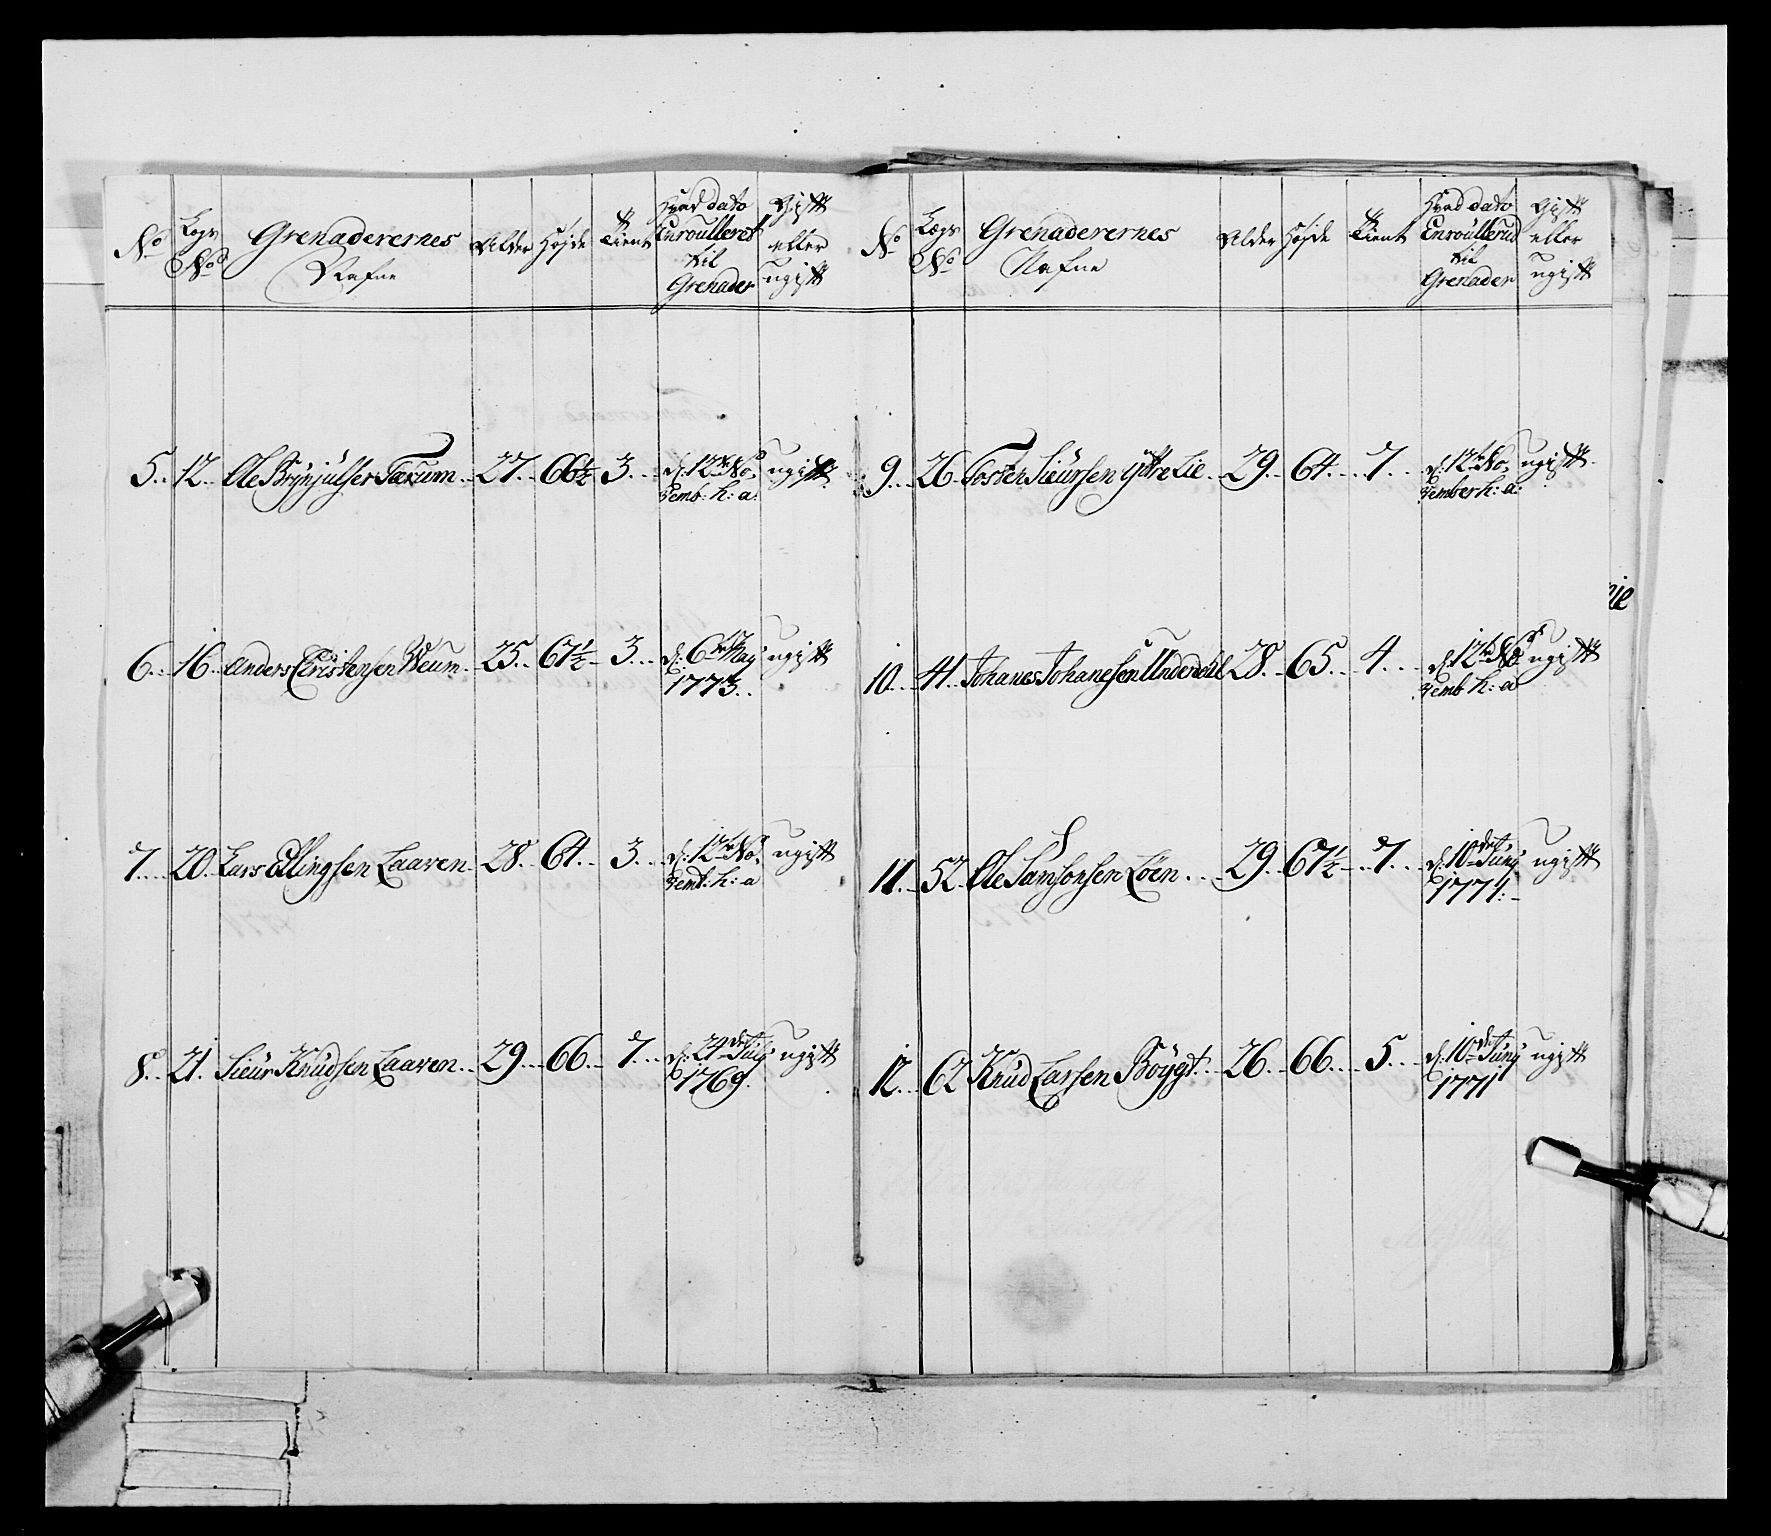 No Legs No Grenaderernes Nafne Alder Høyde Tient Hvad dato Enroulleret til Grenader Gift eller ugift
5.. 12.. Ole Brynjulsen Tærum.. 27.. 66½ 3... d: 12te No-
vemb: h: a: ugift
6.. 16.. Anders Christensen Weum.. 25.. 67½.. 3... d: 6te May
1773.. ugift
7... 20. Lars Ellingsen Laaven.. 28.. 64.. 3... d: 12te No-
vemb: h: a ugift
8... 21. Sieur Knudsen Laaven.. 29... 66.. 7... d: 24de July
1769. ugift
No Lægs No Grenaderernes Nafne Alder Høyde Tient Hvad dato Enroullerud til Grenader Gift eller ugift
9... 26.. Tosten Sieursen Ytre Lie.. 29.. 64.. 7.. d: 12te No-
vember h: a: ugift
10... 41.. Johanes Johanesen Underdal 28.. 65.. 4... d: 12te No-
vemb h: a ugift
11.. 52. Ole Samsonsen Löen... 29.. 67½.. 7... d: 10de Juny
1771.. ugift
12... 62 Knud Larsen Böygt.. 26.. 66... 5... d: 10de Juny
1771 ugift